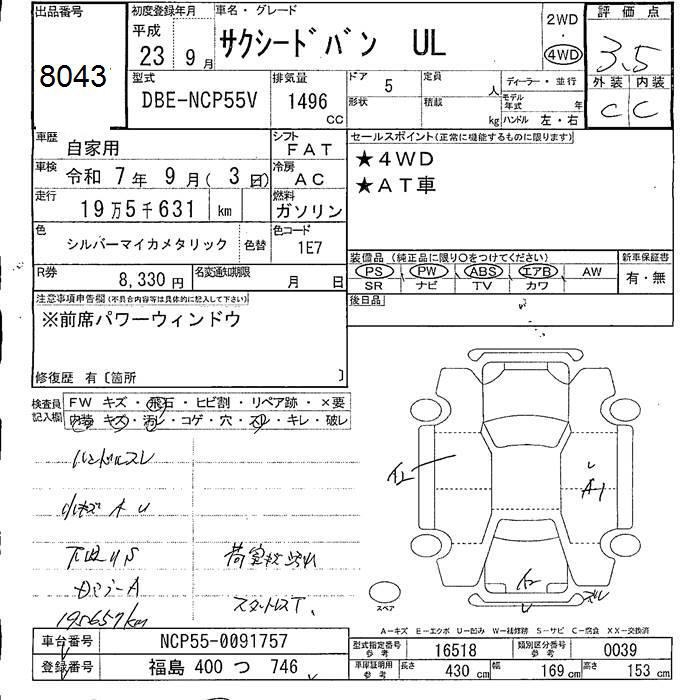 出品番号
8043
初度登録年月
平成
23 9月
車名・グレード
サクシードバン UL
2WD
・
4WD
評価点
3.5
外装 内装
C C
型式
DBE-NCP55V
排気量
1496
CC
ドア 5
形状
定員 人
積載 kg
ディーラー・並行
モデル年式 年
ハンドル 左・右
車歴
自家用
シフト
FAT
車検
令和 7年 9月( 3日)
冷房
AC
走行
19万5千631 km
燃料
ガソリン
色
シルバーマイカメタリック
色替
色コード
1E7
R券
8,330円
名変通知期限
月 日
セールスポイント(正常に機能するものに限ります)
★4WD
★AT車
装備品(純正品に限り〇をつけてください)
PS PW ABS エアB AW
SR ナビ TV カワ
新車保証書
有・無
後日品
注意事項申告欄(不具合内容等は具体的に記入して下さい)
※前席パワーウィンドウ
修復歴 有〔箇所 〕
検査員記入欄
FW キズ・飛石・ヒビ割・リペア跡・×要
内装 キズ・汚レ・コゲ・穴・スレ・キレ・破レ
ハンドルスレ
小キズ A U
下回りS
荷室枚汚れ
ガラーA
スタットレスT、
195657km
A1
ズレ
スペア
A−キズ E−エクボ U−凹み W−補修跡 S−サビ C−腐食 XX−交換済
車台番号
NCP55-0091757
登録番号
福島 400 つ 746
型式指定番号
参考
16518
類別区分番号
参考
0039
車庫証明用
参考
長さ 430 cm
幅 169 cm
高さ 153 cm